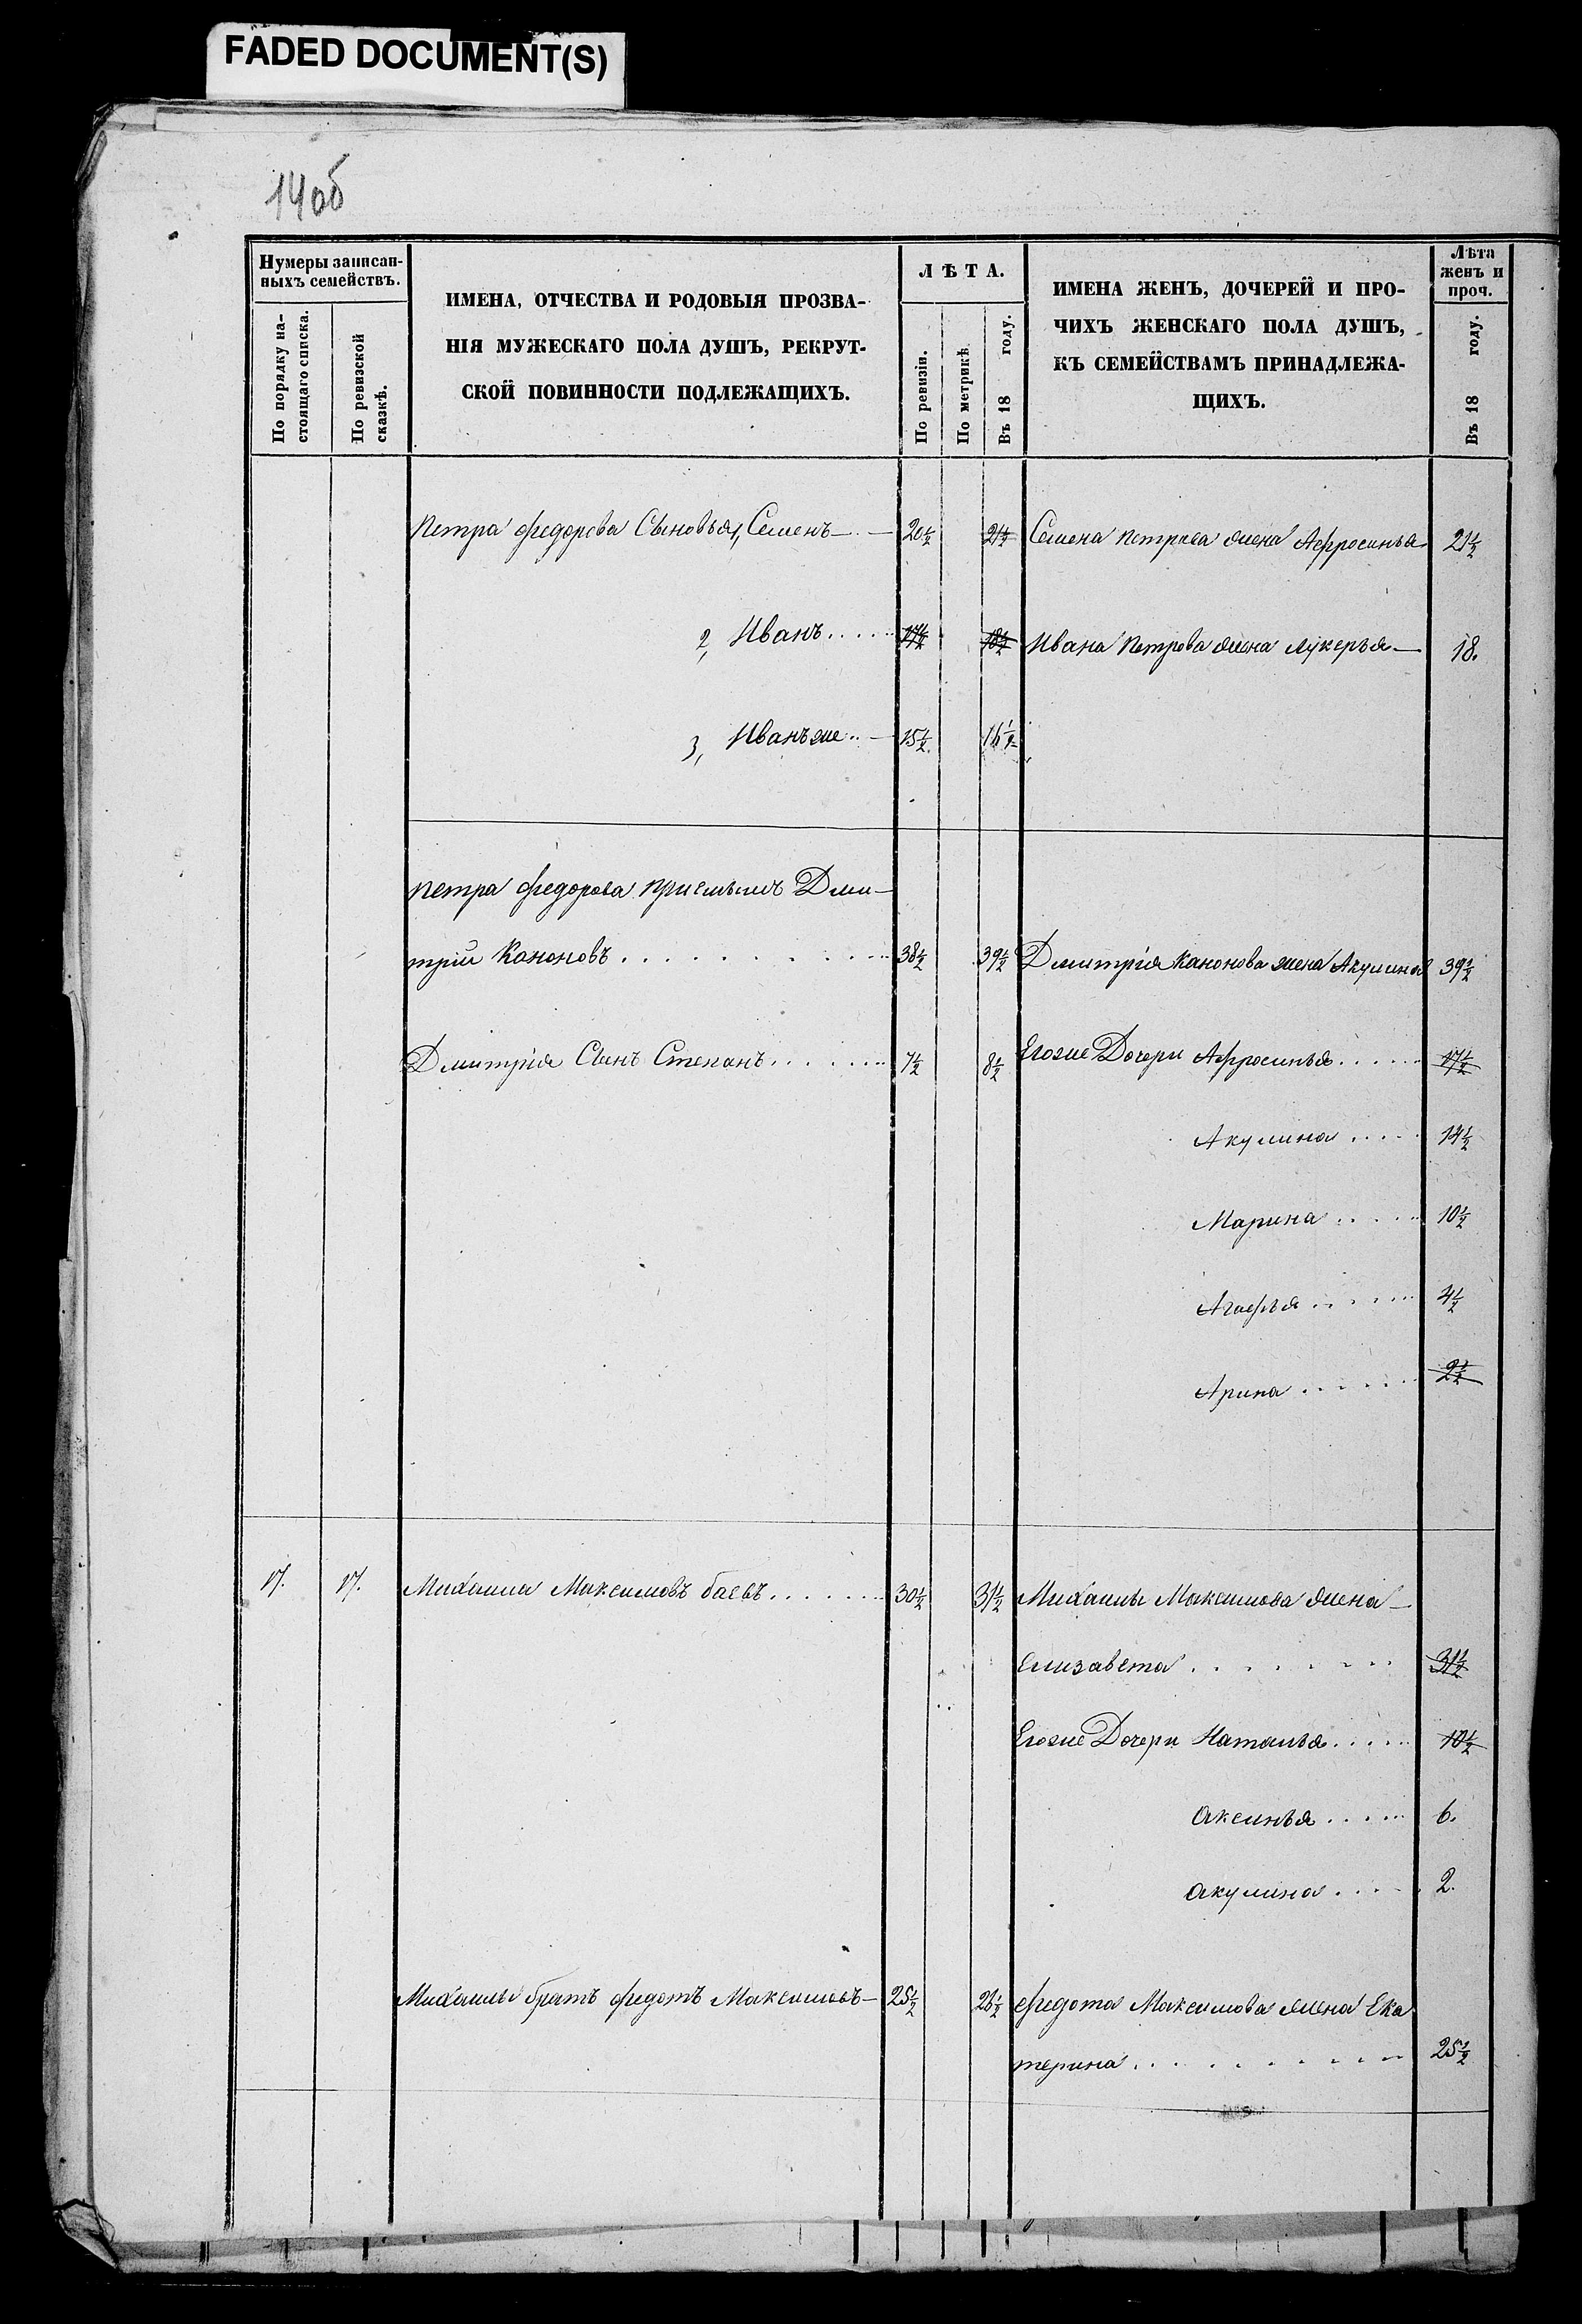 FADED DOCUMENT(S)
14об
Нумеры записан-
ныхъ семействъ.
По порядку на-
стоящаго списка.
По ревизской
сказкѣ.
ИМЕНА, ОТЧЕСТВА И РОДОВЫЯ ПРОЗВА-
НІЯ МУЖЕСКАГО ПОЛА ДУШЪ, РЕКРУТ-
СКОЙ ПОВИННОСТИ ПОДЛЕЖАЩИХЪ.
ЛѢТА.
По ревизіи.
По метрикѣ.
Въ 18 году.
ИМЕНА ЖЕНЪ, ДОЧЕРЕЙ И ПРО-
ЧИХЪ ЖЕНСКАГО ПОЛА ДУШЪ,
КЪ СЕМЕЙСТВАМЪ ПРИНАДЛЕЖА-
ЩИХЪ.
Лѣта
женъ и
проч.
Въ 18 году.
Петра Федорова Сыновья 1, Семенъ 20½ 21½ Семена Петрова жена Афросинья 21½
2, Иванъ..... 17½ 18½ Ивана Петрова жена Лукерья 18.
3, Иванъ же.. 15½ 16½
Петра Федорова приемышъ Дми-
трій Кононовъ.......... 38½ 39½ Дмитрія Кононова жена Акулина 39½
Дмитрія Сынъ Степанъ....... 7½ 8½ Егоже Дочери Афросинья...... 17½
Акулина..... 14½
Марина..... 10½
Агафья...... 4½
Арина...... 2½
17. 17. Михаила Максимовъ баевъ....... 30½ 31½ Михаилы Максимова жена
Елизавета........ 31½
Егоже Дочери Наталья..... 10½
Аксинья..... 6.
Акулина..... 2.
Михаилы братъ Федотъ Максимовъ 25½ 26½ Федота Максимова жена Ека
терина.......... 25½